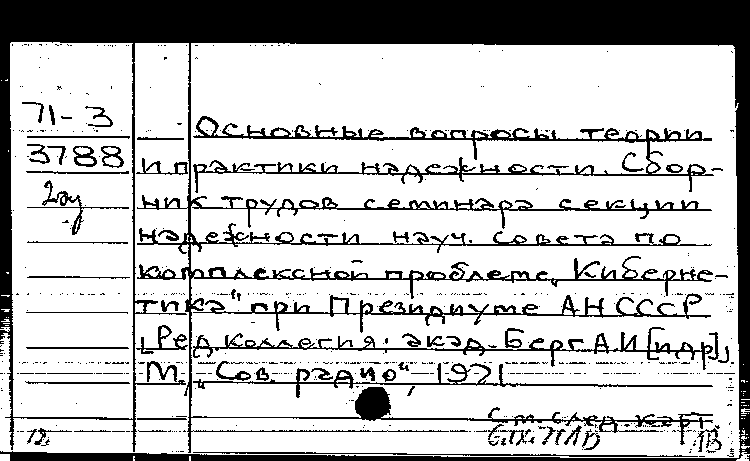 71-3
3788
2ау
Основные вопросы теории
и практики надежности. Сбор-
ник трудов семинара секции
надежности науч. совета по
комплексной проблеме „Киберне-
тика" при Президиуме АН СССР
[Ред. коллегия: акад. Берг А.И [и др],
М., „Сов. радио", 1971
см. след. карт.
12